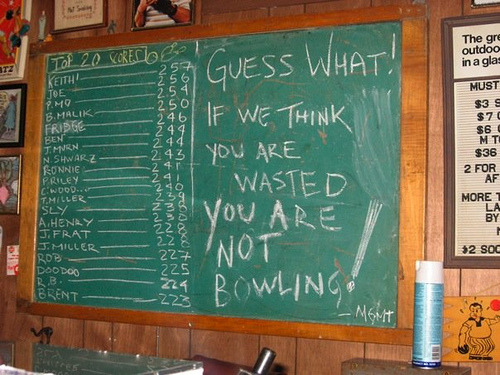 TOP 20 SCORES
KEITH 257
JOE 256
P. MO 254
B. MALIK 250
FRIDGE 246
BEN 244
T. MNRN 244
N. SCHWARZ 243
RONNIE 241
P. RILEY 241
C. WOOD... 240
T. MILLER
SLY
A. HENRY
J. FRAT 228
J. MILLER 228
ROB 227
DOODOO 225
R.B. 224
BRENT 223
GUESS WHAT!
IF WE THINK
YOU ARE
WASTED
YOU ARE
NOT
BOWLING!
- MGMT
The gre
outdoo
in a glas
MUST
$3 S
$7
$6
M T
$36
2 FOR
AF
MORE T
LA
BY
$2 SOC